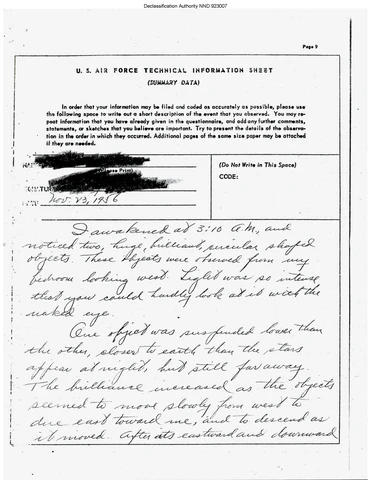 Declassification Authority NND 923007
Page 9
U. S. AIR FORCE TECHNICAL INFORMATION SHEET
(SUMMARY DATA)
In order that your information may be filed and coded as accurately as possible, please use
the following space to write out a short description of the event that you observed. You may re-
peat information that you have already given in the questionnaire, and add any further comments,
statements, or sketches that you believe are important. Try to present the details of the observa-
tion in the order in which they occurred. Additional pages of the same size paper may be attached
if they are needed.
(Please Print)
(Do Not Write in This Space)
CODE:
Nov. 23, 1956
I awakened at 3:10 A.M, and
noticed two, huge, brilliant, circular shaped
objects. These objects were observed from my
bedroom looking west. Light was so intense
that you could hardly look at it with the
naked eye.
One object was suspended lower than
the other, closer to earth than the stars
appear at night, but still far away.
The brilliance increased as the objects
seemed to move slowly from west to
due east toward me, and to descend as
it moved. After its eastward and downward